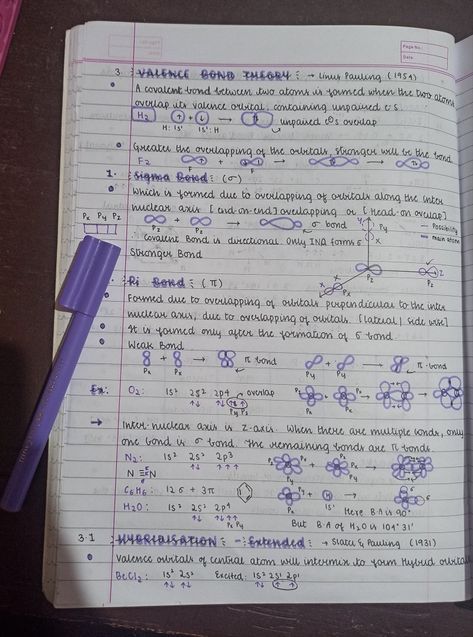 Page No.
Date
3. VALENCE BOND THEORY : → Linus Pauling (1954)
A covalent bond between two atoms is formed when the two atoms
overlap its valence orbital, containing unpaired e⁻s.
H₂ ↑ + ↓ → ↑↓ unpaired e⁻s overlap
H: 1s¹ 1s¹: H
Greater the overlapping of the orbitals, stronger will be the bond
F₂
1. Sigma Bond : (σ)
Which is formed due to overlapping of orbitals along the inter
nuclear axis [end-on-end] overlapping or [head-on overlap]
Px Py Pz
+ → σ bond
Pz Pz
Covalent Bond is directional. Only IND forms σ
Stronger Bond
Y Py X → Possibility → main atom
Z Pz
X Px Y
Pi Bond : (π)
Formed due to overlapping of orbitals perpendicular to the inter
nuclear axis, due to overlapping of orbitals [lateral / side wise]
It is formed only after the formation of σ bond.
Weak Bond
+ → π bond + → π bond
Px Px Py Py
Ex: O₂: 1s² 2s² 2p⁴ overlap
↑↓ ↑↓ ↑ ↑
Py Pz
→ Inter-nuclear axis is z-axis. When there are multiple bonds, only
one bond is σ bond. The remaining bonds are π bonds.
N₂: 1s² 2s² 2p³
↑↓ ↑ ↑ ↑
N ≡ N
C₆H₆: 12σ + 3π
H₂O: 1s² 2s² 2p⁴
↑↓ ↑↓ ↑ ↑
Px Py
1s¹
Here B.A is 90°
But B.A of H₂O is 104° 31'
3.1 HYBRIDISATION - Extended : → Slater & Pauling (1931)
Valence orbitals of central atom will intermix to form Hybrid orbitals
BeCl₂: 1s² 2s² Excited: 1s² 2s¹ 2p¹
↑↓ ↑↓ ↑↓ ↑ ↑